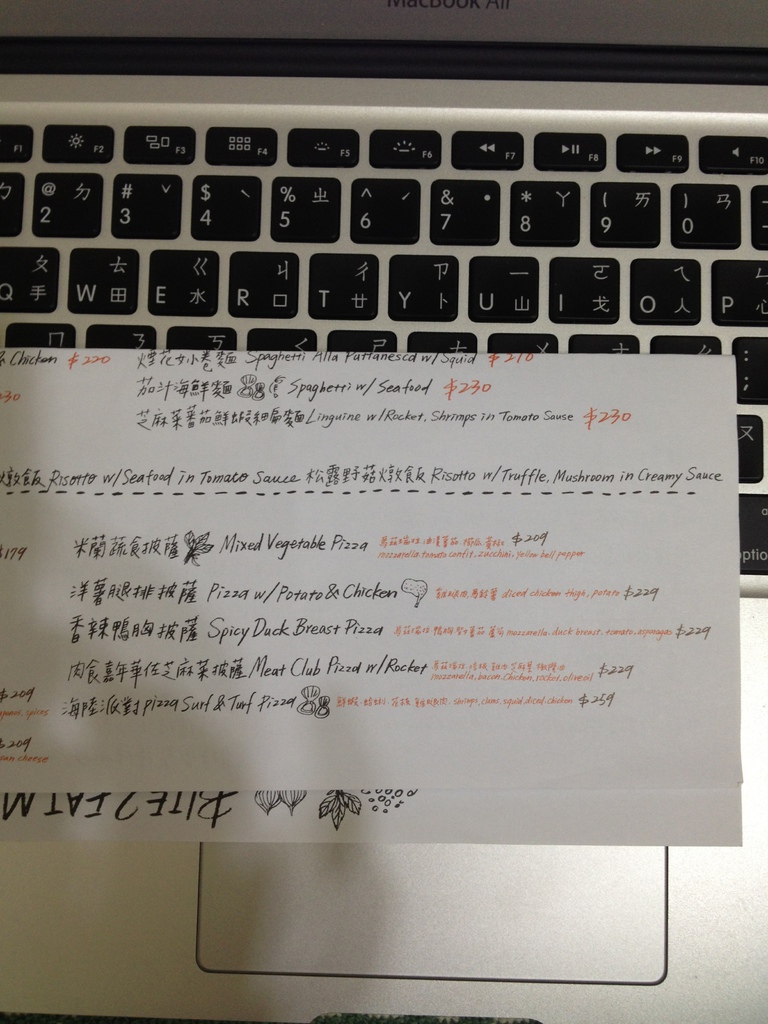 MacBook Air
F1 F2 F3 F4 F5 F6 F7 F8 F9 F10
ㄅ @ ㄉ # ˇ $ ˋ % ㄓ ^ ˊ & ˙ * ㄚ ( ㄞ ) ㄢ
2 3 4 5 6 7 8 9 0
ㄆ ㄊ ㄍ ㄐ ㄔ ㄗ ㄧ ㄛ ㄟ ㄣ
Q 手 W 田 E 水 R 口 T 廿 Y 卜 U 山 I 戈 O 人 P 心
& Chicken $220 煙花女小卷麵 Spaghetti Alla Puttanesca w/Squid $210
30 茄汁海鮮麵 Spaghetti w/ Seafood $230
芝麻菜蕃茄鮮蝦細扁麵 Linguine w/Rocket, Shrimps in Tomato Sause $230
ㄡ
燉飯 Risotto w/Seafood in Tomato Sauce 松露野菇燉飯 Risotto w/Truffle, Mushroom in Creamy Sauce
option
$179 米蘭蔬食披薩 Mixed Vegetable Pizza $209
mozzarella, tomato confit, zucchini, yellow bell pepper
洋薯腿排披薩 Pizza w/Potato & Chicken diced chicken thigh, potato $229
香辣鴨胸披薩 Spicy Duck Breast Pizza mozzarella, duck breast, tomato, asparagus $229
肉食嘉年華佐芝麻菜披薩 Meat Club Pizza w/Rocket $229
mozzarella, bacon, chicken, rocket, olive oil
$209 海陸派對pizza Surf & Turf Pizza shrimps, clams, squid, diced chicken $259
spices
$209
cheese
BITE 2 EAT